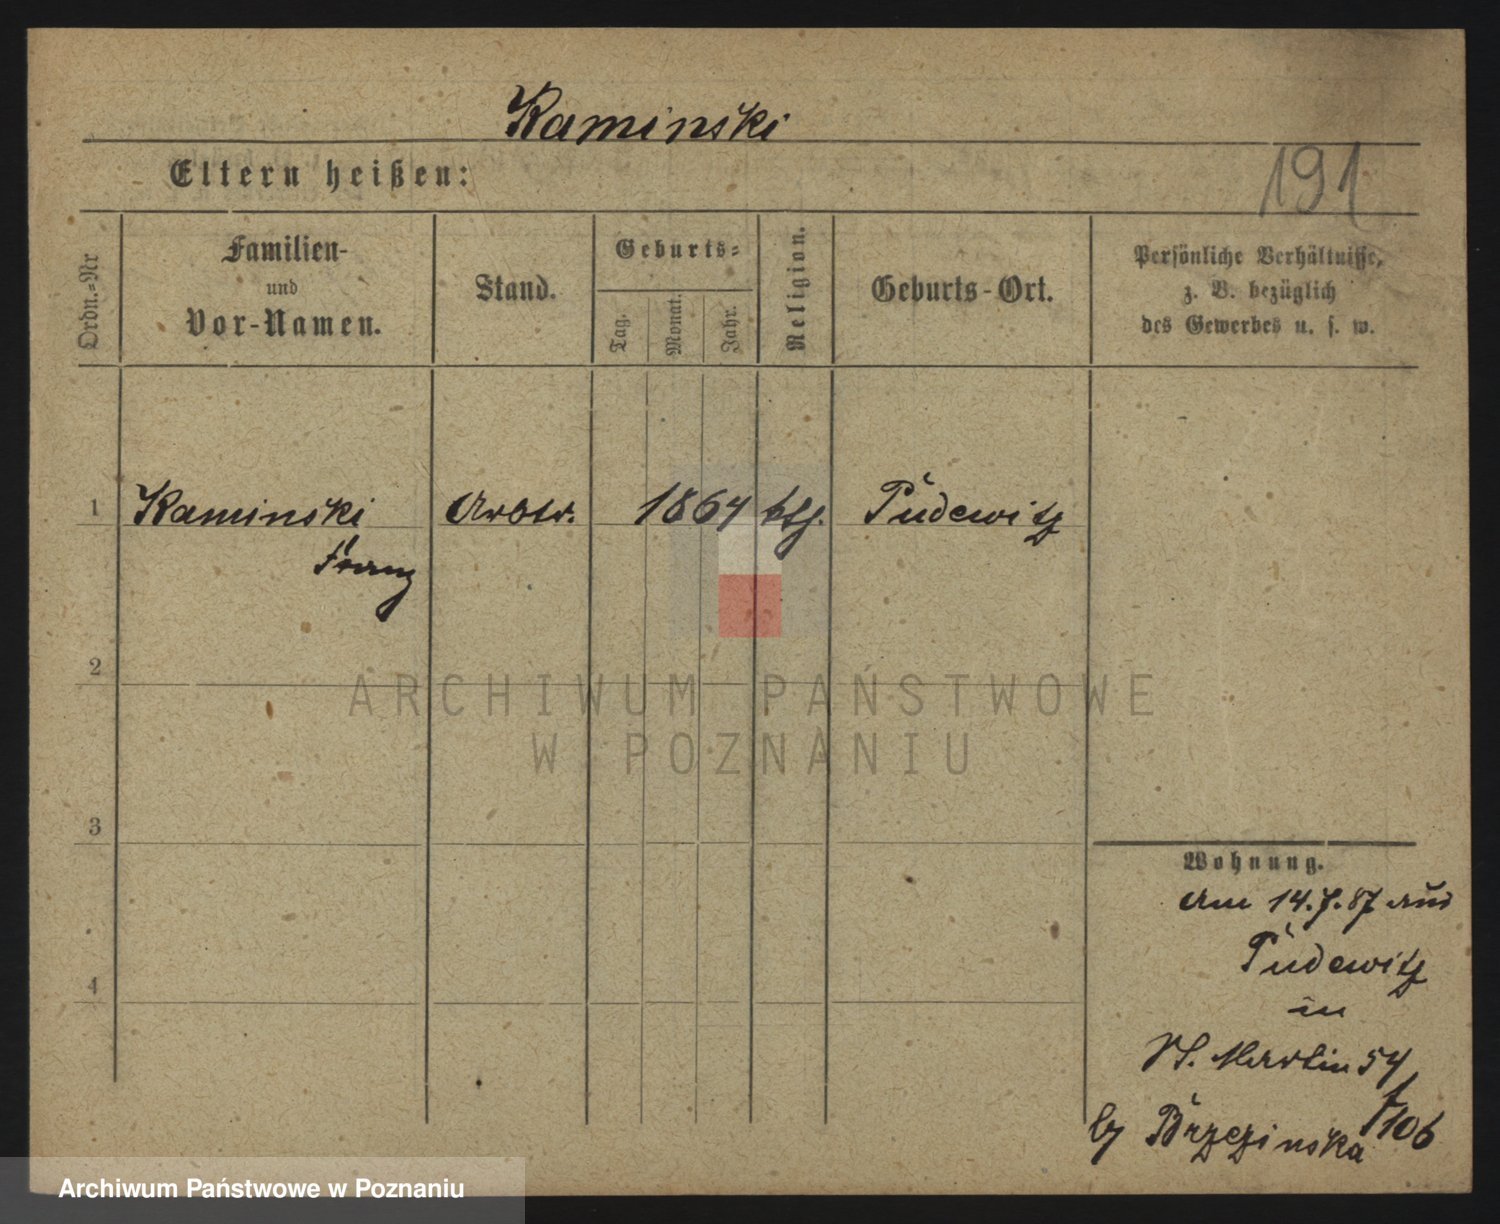 Kaminski
Eltern heißen:
191
Ordn.-Nr
Familien-
und
Vor-Namen.
Stand.
Geburts-
Tag.
Monat.
Jahr.
Religion.
Geburts-Ort.
Persönliche Verhältnisse,
z. B. bezüglich
des Gewerbes u. s. w.
1 Kaminski Arbtr. 1864 ktg. Pudewitz
Franz
2
ARCHIWUM PAŃSTWOWE
W POZNANIU
3
Wohnung.
Am 14.7.87 aus
Pudewitz
4
in
St. Martin 54
by Brzezinska 106
Archiwum Państwowe w Poznaniu